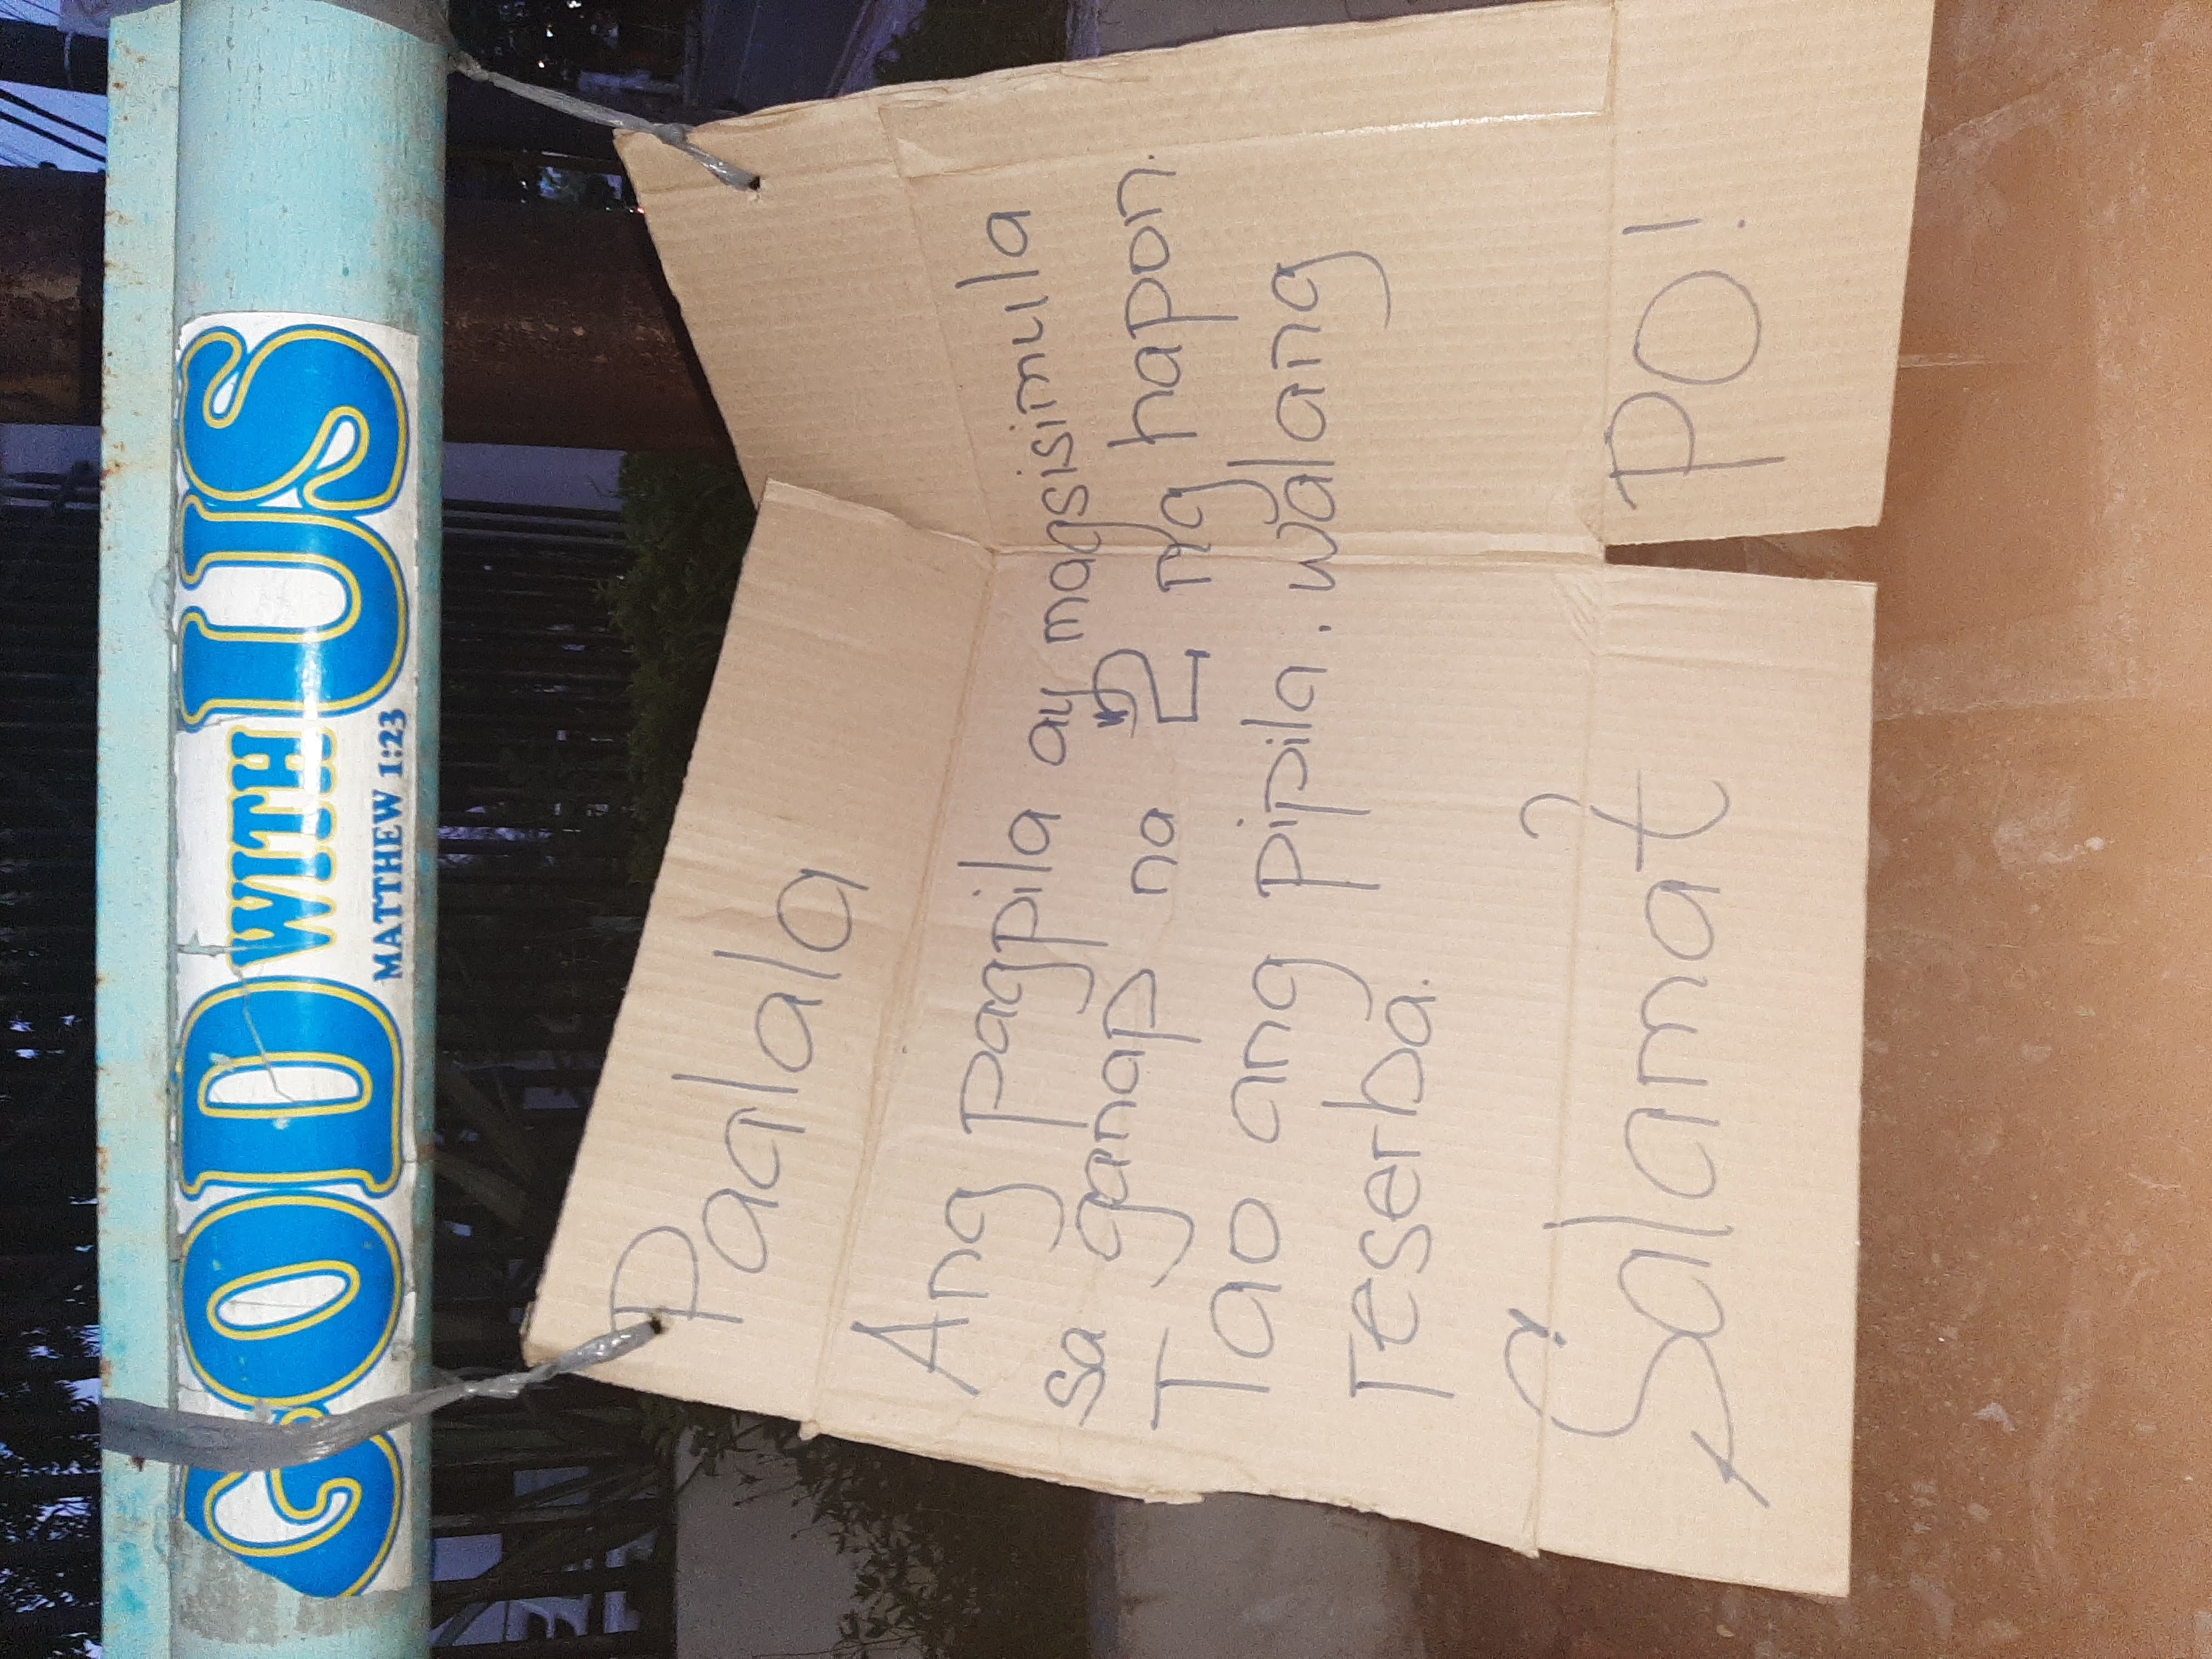 GOD WITH US
MATTHEW 1:23
Paalala
Ang pagpila ay magsisimula
sa ganap na 2 ng hapon.
Tao ang pipila. walang
reserba.
Salamat PO!